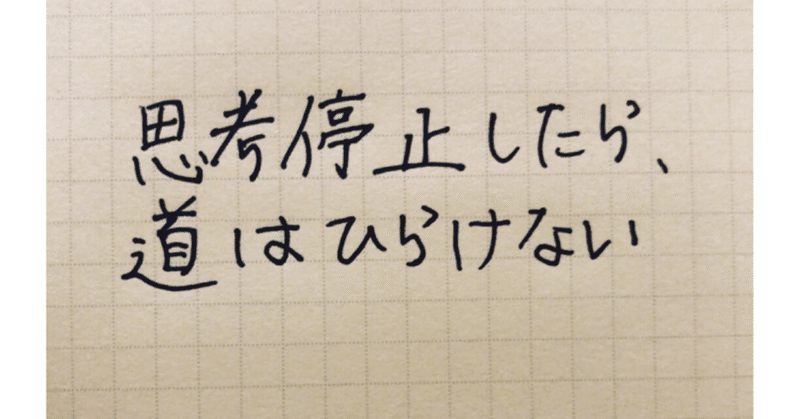 思考停止したら、
道はひらけない